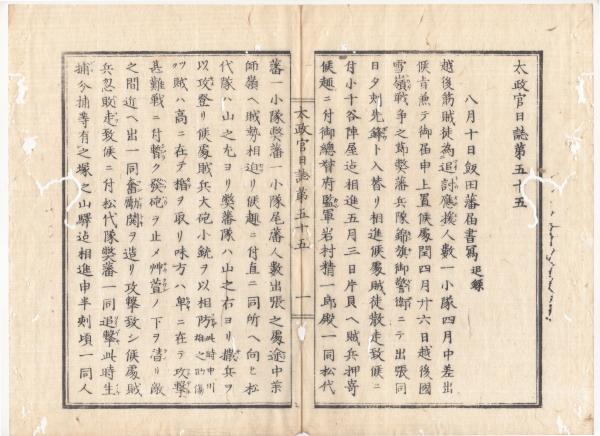 太政官日誌第五十五
八月十日飯田藩届書寫 追録
越後筋賊徒為追討應援人数一小隊四月中差出
候旨兼テ御届申上置候處閏四月廿六日越後國
雪嶺戦争之節弊兵隊錦旗御警衛ニテ出張同
日夕刻先鋒ト入替リ相進候處賊徒散走致候ニ
付小千谷陣屋迠相進五月三日片貝ヘ賊兵押寄
候趣ニ付御總督府監軍岩村精一郎殿一同松代
太政官日誌第五十五 一
藩一小隊弊藩一小隊尾藩人数出張之處途中藥
師嶺ヘ賊勢相迫リ候趣ニ付直ニ同所ヘ向ヒ松
代隊ハ山之左ヨリ弊藩隊ハ山之右ヨリ撒兵ヲ
以攻登リ候處賊兵大砲小銃ヲ以相防 此時中川
ツ賊ハ高ニ在テ楯ヲ取リ味方ハ卑ニ在テ攻撃
甚難戦ニ付暫ク発砲ヲ止メ艸萱ノ下ヲ潜リ敵
之間近ヘ出一同奮勵鬨ヲ造リ攻撃致シ候處賊
兵忽敗走致候ニ付松代隊弊藩一同追撃此時生
捕分捕等有之塚之山驛迠相進申半刻頃一同人